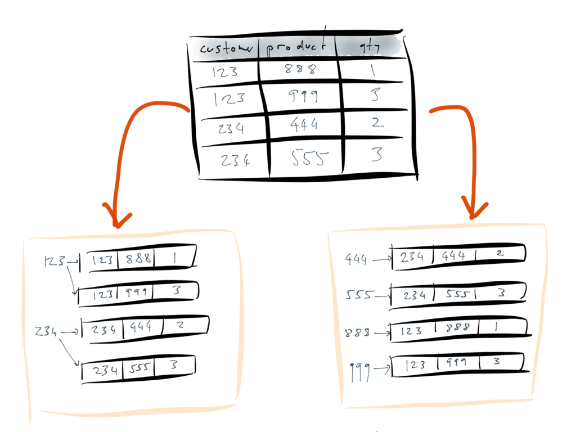 customer product qty
123 888 1
123 999 3
234 444 2
234 555 3
123 123 888 1
123 999 3
234 234 444 2
234 555 3
444 234 444 2
555 234 555 3
888 123 888 1
999 123 999 3